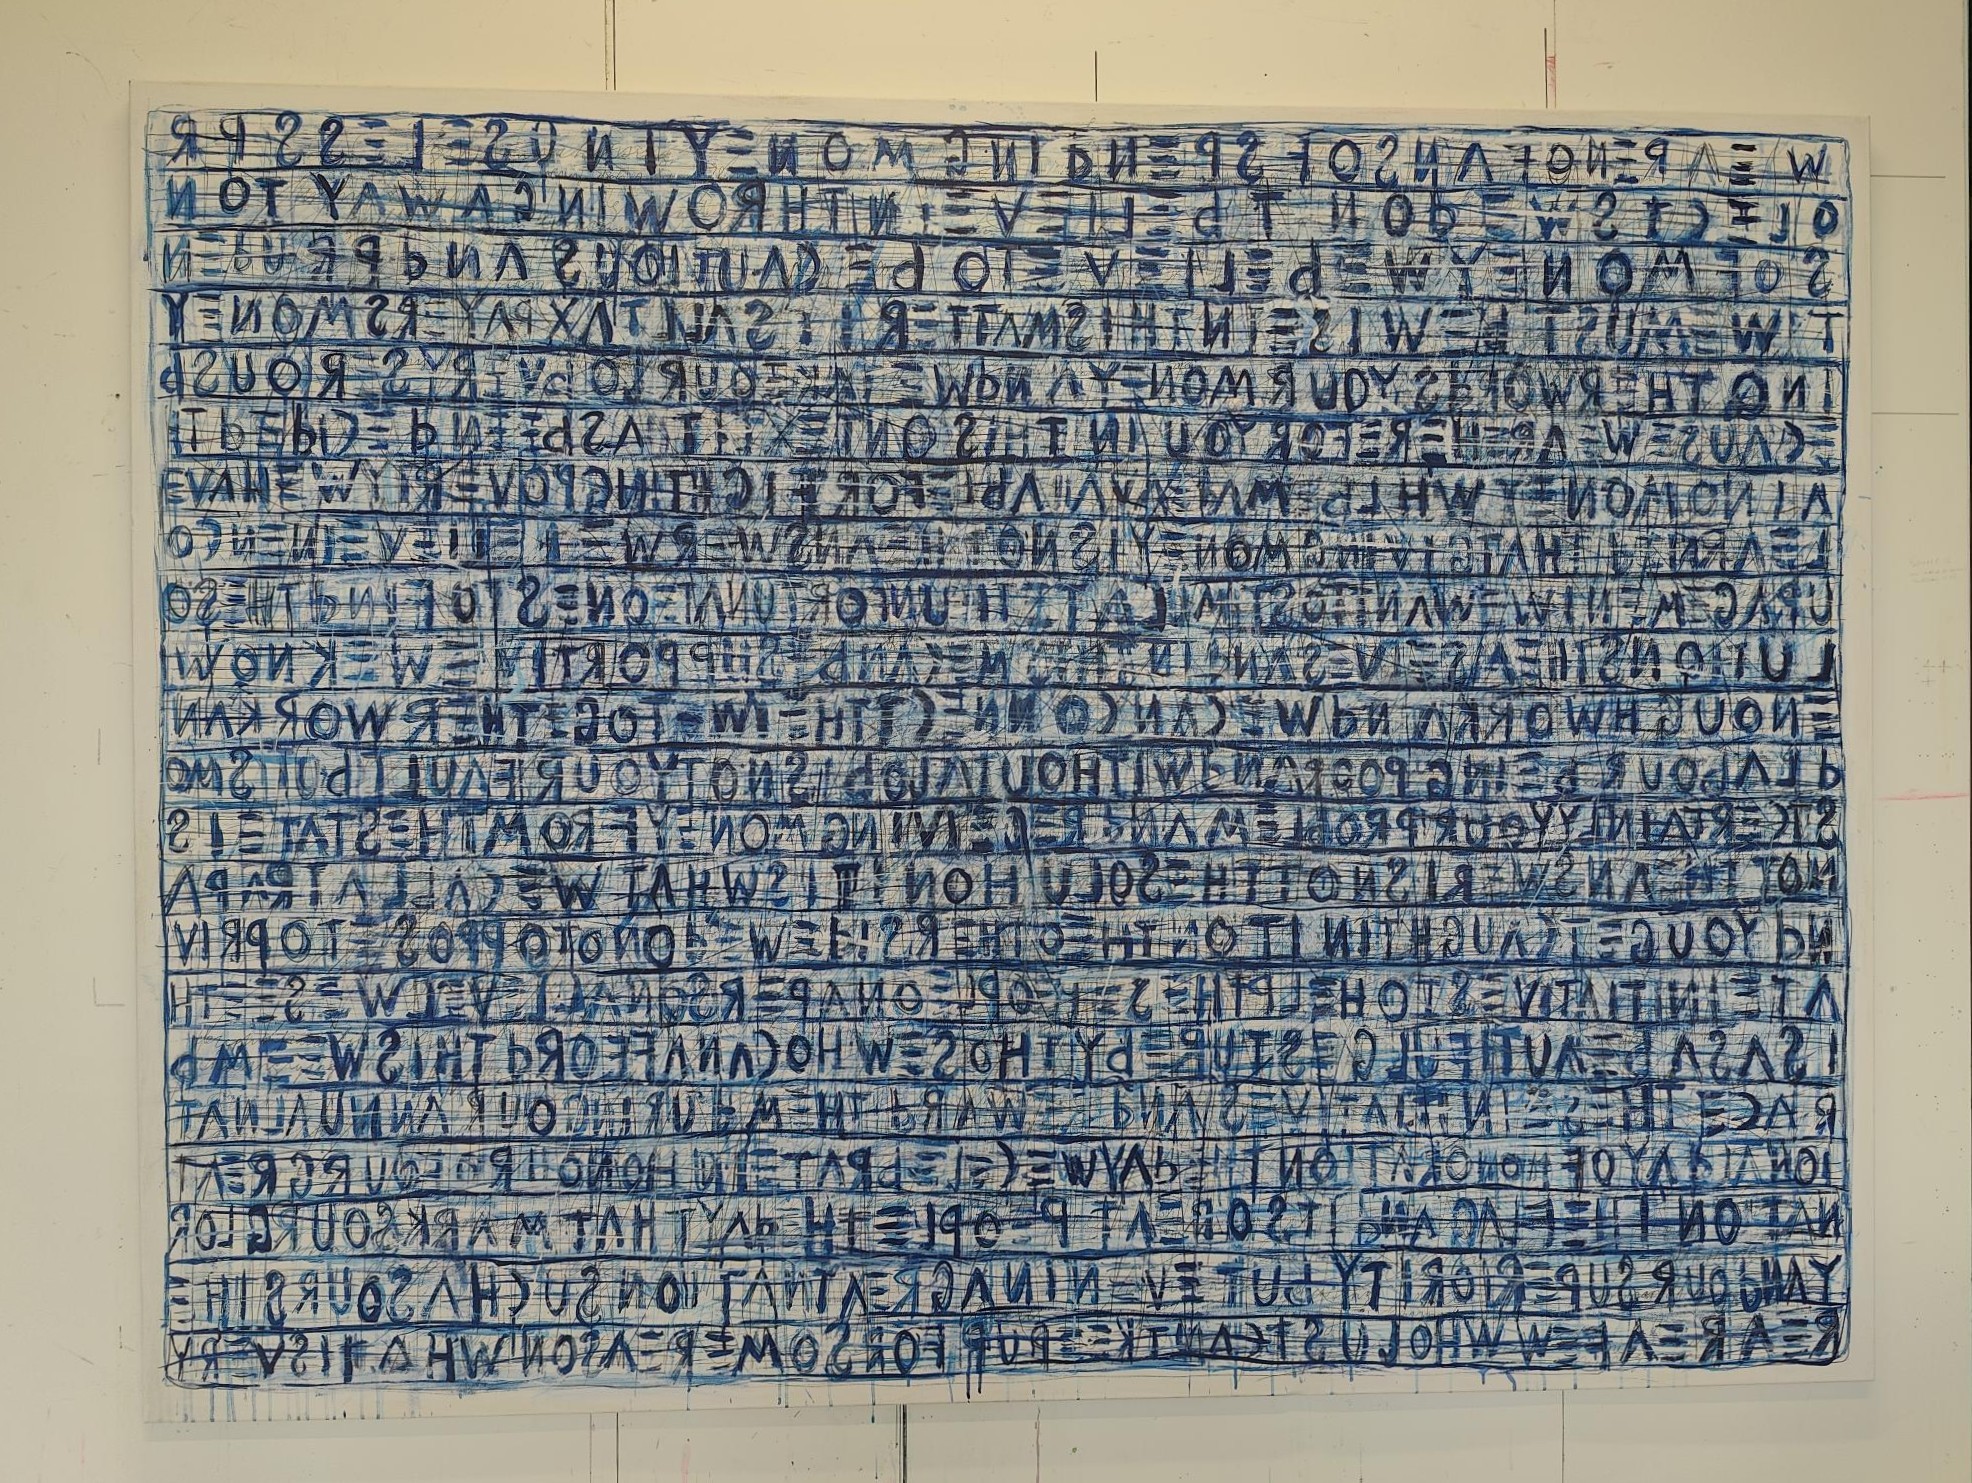 WE ARE NOT FANS OF SPENDING MONEY IN USELESS PR
OJECTS WE DON T BELIEVE IN THROWING AWAY TON
S OF MONEY WE BELIEVE TO BE CAUTIOUS AND PRUDEN
T WE MUST BE WISE IN THIS MATTER IT S ALL TAXPAYERS MONEY
IN OTHER WORDS YOUR MONEY AND WE TAKE OUR JOB VERY SERIOUS B
ECAUSE WE ARE HERE FOR YOU IN THIS CONTEXT IT HAS BEEN DECIDED TH
AT NO MONEY WILL BE MADE AVAILABLE FOR FIGHTING POVERTY WE HAVE
LEARNED THAT GIVING MONEY IS NOT THE ANSWER WE BELIEVE IN ENCO
URAGEMENT WE WANT TO STIMULATE THE UNFORTUNATE ONES TO FIND THE SO
LUTIONS THEMSELVES AND SUPPORT WE KNOW
ENOUGH WORK AND WE CAN CONNECT THEM TOGETHER WORK AN
D LABOUR BEING POOR AND WITHOUT A JOB IS NOT YOUR FAULT BUT IS MO
ST CERTAINLY YOUR PROBLEM AND RECEIVING MONEY FROM THE STATE IS
NOT THE ANSWER IS NOT THE SOLUTION IT IS WHAT WE CALL A TRAP A
ND YOU GET CAUGHT IN IT ON THE OTHER SIDE WE DO NOT OPPOSE TO PRIV
ATE INITIATIVES TO HELP THESE PEOPLE ON A PERSONAL LEVEL WE SEE TH
IS AS A BEAUTIFUL GESTURE BY THOSE WHO CAN AFFORD THIS WE EMB
RACE THESE INITIATIVES AND REWARD THEM DURING OUR ANNUAL NAT
IONAL DAY OF HONORATION THE DAY WE CELEBRATE IN HONOUR OF OUR GREAT
NATION THE FLAG AND ITS GREAT PEOPLE THE DAY THAT MARKS OUR GLOR
Y AND OUR SUPERIORITY BUT EVEN IN A GREAT NATION SUCH AS OURS THE
RE ARE A FEW WHO JUST CANT KEEP UP FOR SOME REASON WHAT IS VERY